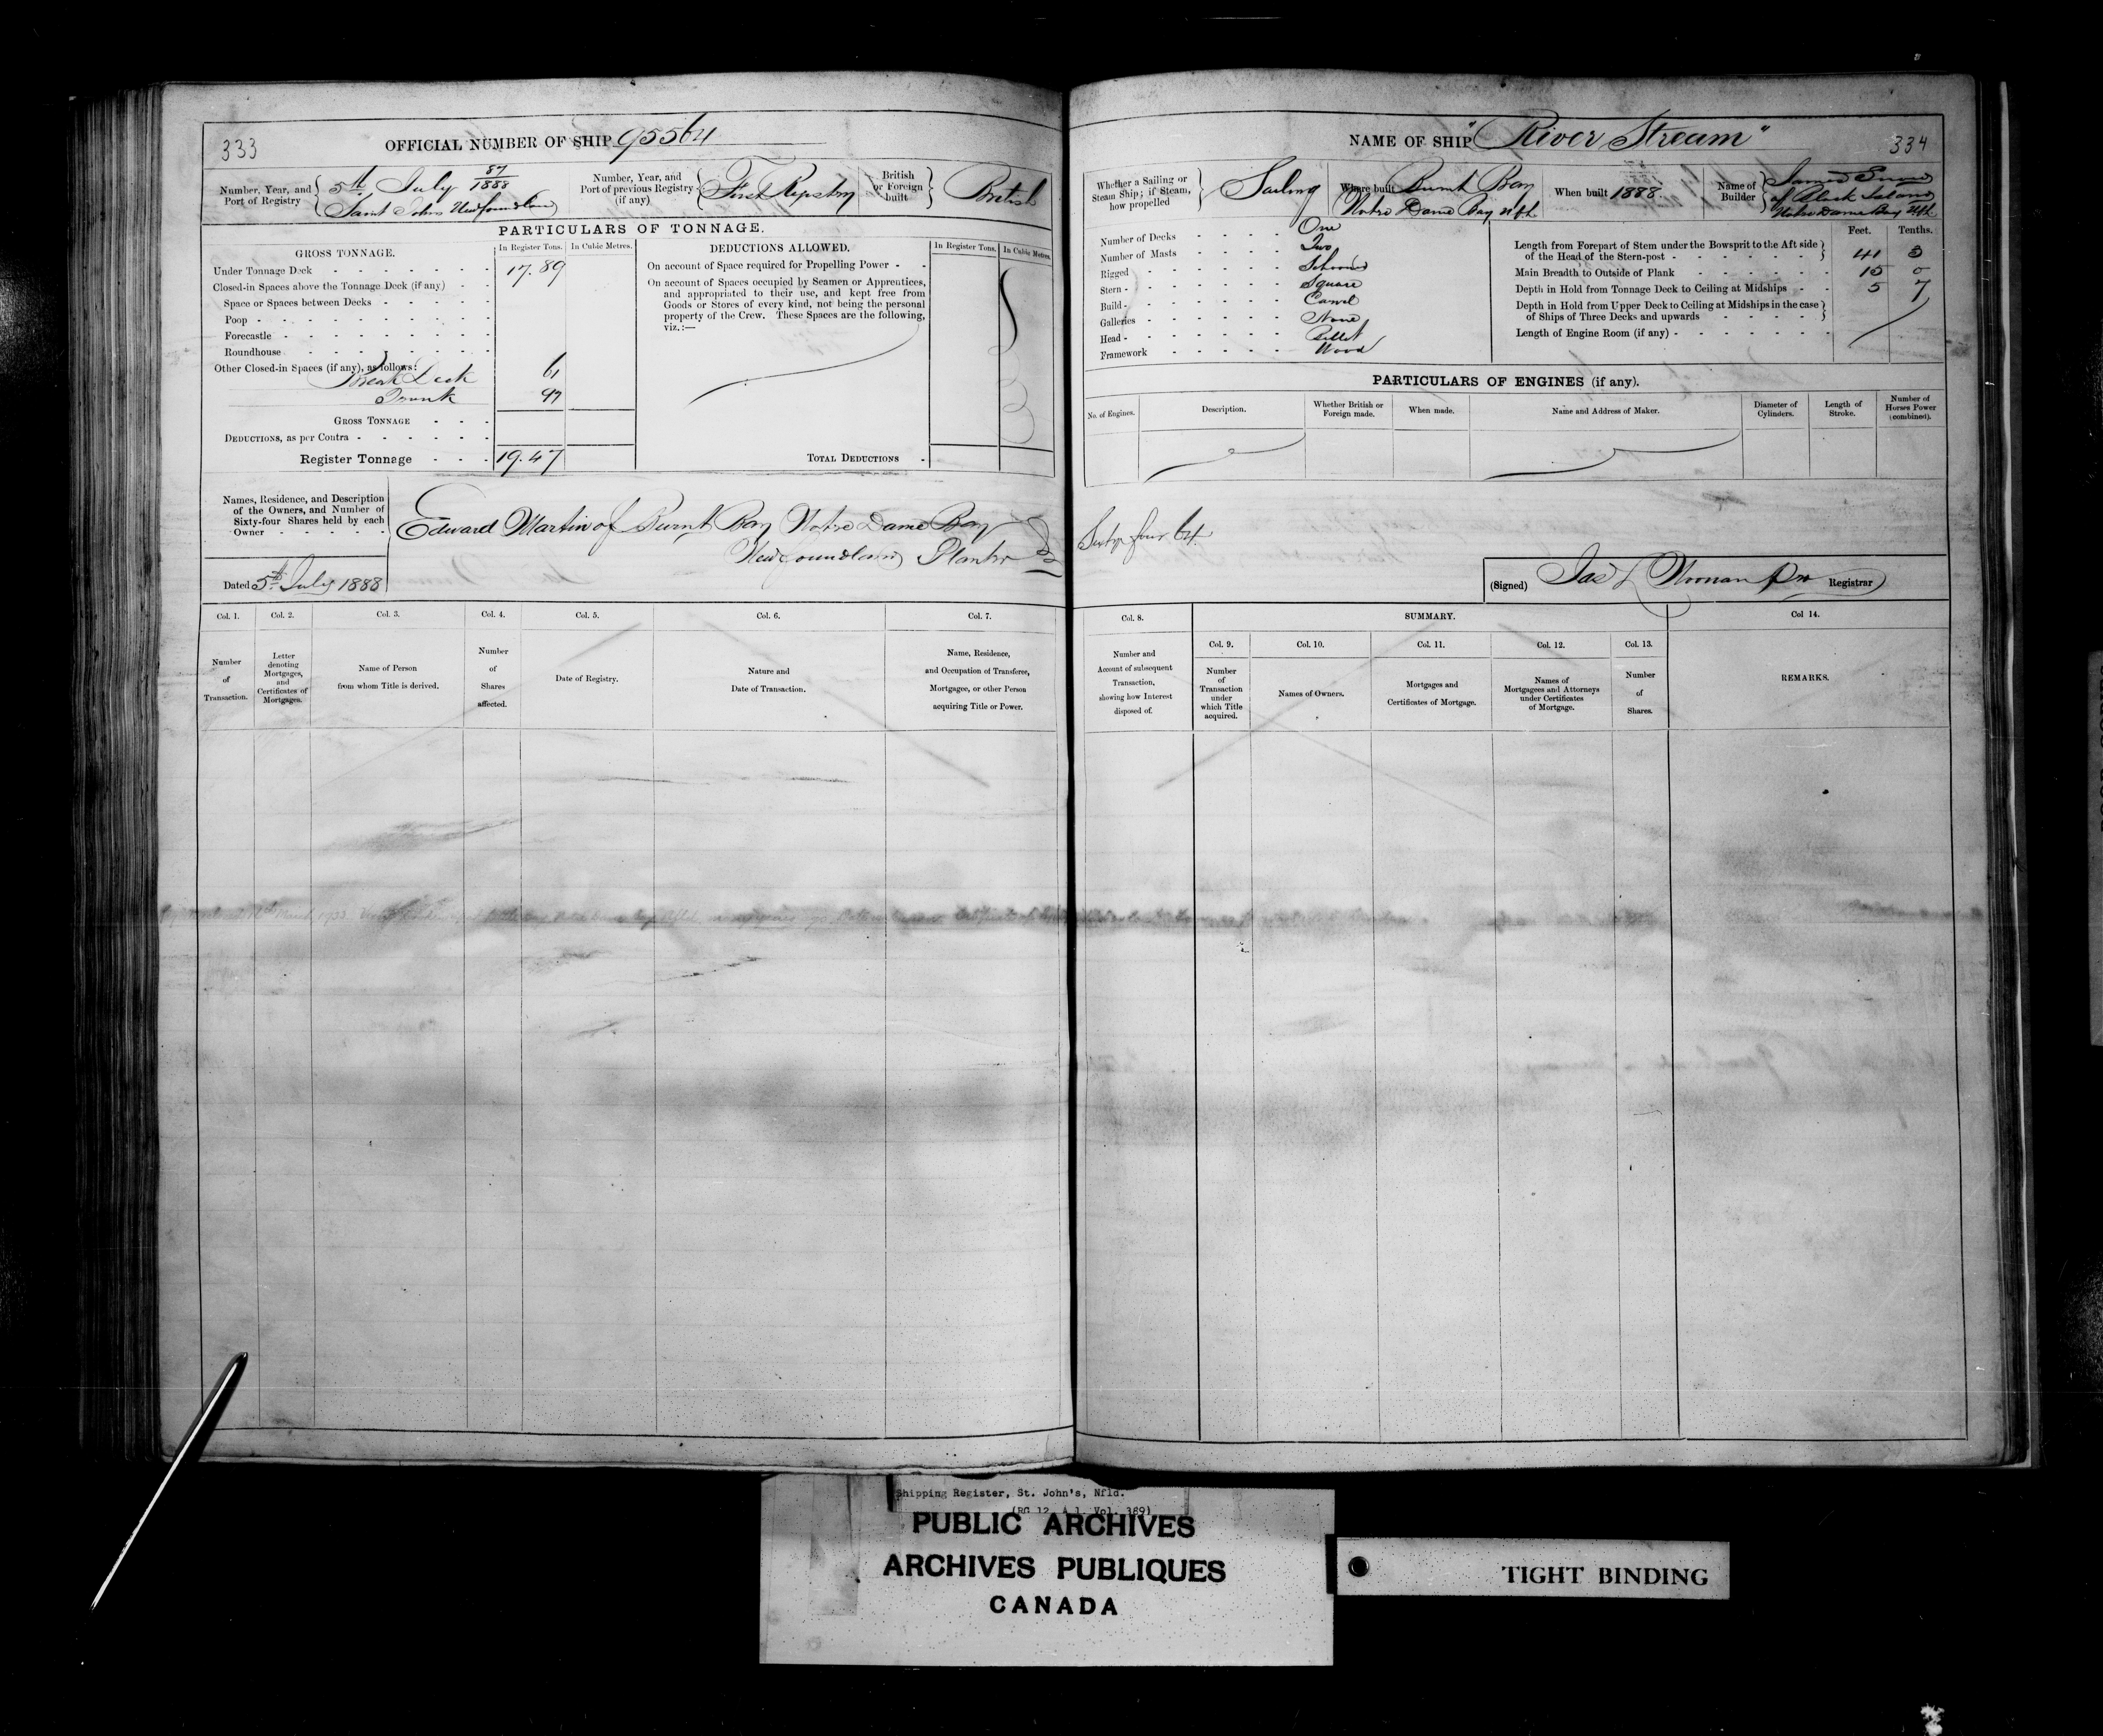 333
OFFICIAL NUMBER OF SHIP 95564
Number, Year, and Port of Registry
5th July 87/1888
Saint Johns Newfoundland
Number, Year, and Port of previous Registry (if any)
First Registry
British or Foreign built
British
PARTICULARS OF TONNAGE.
GROSS TONNAGE.
In Register Tons.
In Cubic Metres.
Under Tonnage Deck 17.89
Closed-in Spaces above the Tonnage Deck (if any)
Space or Spaces between Decks
Poop
Forecastle
Roundhouse
Other Closed-in Spaces (if any), as follows:
Break Deck 61
Trunk 97
GROSS TONNAGE
DEDUCTIONS, as per Contra
Register Tonnage 19.47
DEDUCTIONS ALLOWED.
In Register Tons.
In Cubic Metres.
On account of Space required for Propelling Power
On account of Spaces occupied by Seamen or Apprentices,
and appropriated to their use, and kept free from
Goods or Stores of every kind, not being the personal
property of the Crew. These Spaces are the following,
viz.:—
TOTAL DEDUCTIONS
Names, Residence, and Description
of the Owners, and Number of
Sixty-four Shares held by each
Owner
Edward Martin of Burnt Bay Notre Dame Bay
Newfoundland Planter
Dated 5th July 1888
Col. 1.
Number
of
Transaction.
Col. 2.
Letter
denoting
Mortgages,
and
Certificates of
Mortgages.
Col. 3.
Name of Person
from whom Title is derived.
Col. 4.
Number
of
Shares
affected.
Col. 5.
Date of Registry.
Col. 6.
Nature and
Date of Transaction.
Col. 7.
Name, Residence,
and Occupation of Transferee,
Mortgagee, or other Person
acquiring Title or Power.
NAME OF SHIP "River Stream"
334
Whether a Sailing or
Steam Ship; if Steam,
how propelled
Sailing
Where built Burnt Bay
Notre Dame Bay Nfld
When built 1888.
Name of
Builder
James
of Black Island
Notre Dame Bay Nfld
Number of Decks One
Number of Masts Two
Rigged Schooner
Stern Square
Build Carvel
Galleries None
Head Billet
Framework Wood
Feet. Tenths.
Length from Forepart of Stem under the Bowsprit to the Aft side
of the Head of the Stern-post 41 3
Main Breadth to Outside of Plank 15 0
Depth in Hold from Tonnage Deck to Ceiling at Midships 5 7
Depth in Hold from Upper Deck to Ceiling at Midships in the case
of Ships of Three Decks and upwards
Length of Engine Room (if any)
PARTICULARS OF ENGINES (if any).
No. of Engines.
Description.
Whether British or
Foreign made.
When made.
Name and Address of Maker.
Diameter of
Cylinders.
Length of
Stroke.
Number of
Horses Power
(combined).
Sixty four 64.
(Signed) Jas L Noonan Registrar
Col. 8.
Number and
Account of subsequent
Transaction,
showing how Interest
disposed of.
SUMMARY.
Col. 9.
Number
of
Transaction
under
which Title
acquired.
Col. 10.
Names of Owners.
Col. 11.
Mortgages and
Certificates of Mortgage.
Col. 12.
Names of
Mortgagees and Attorneys
under Certificates
of Mortgage.
Col. 13.
Number
of
Shares.
Col 14.
REMARKS.
Shipping Register, St. John's, Nfld.
(RG 12, A 1, Vol. 369)
PUBLIC ARCHIVES
ARCHIVES PUBLIQUES
CANADA
TIGHT BINDING